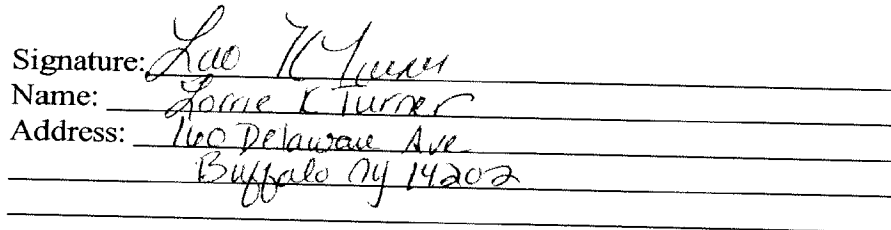 Signature: Lorrie K Turner
Name: Lorrie K Turner
Address: 160 Delaware Ave
Buffalo NY 14202